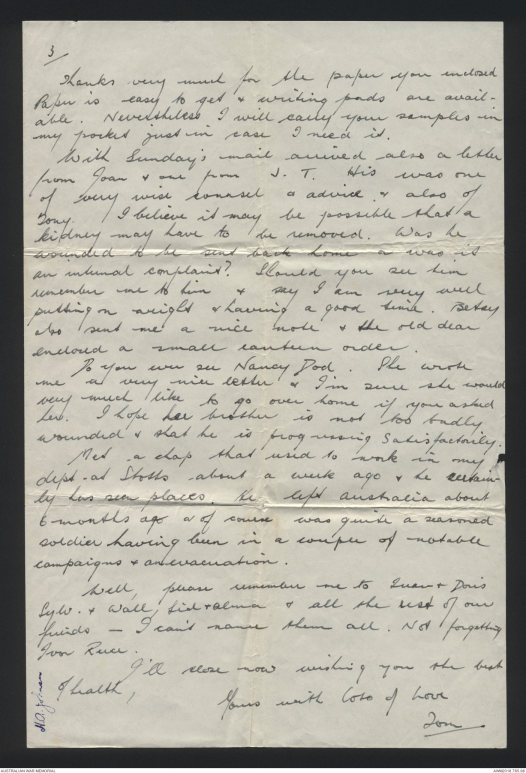 3
Thanks very much for the paper you enclosed
Paper is easy to get & writing pads are avail-
able. Nevertheless I will carry your samples in
my pocket just in case I need it.
With Sunday's mail arrived also a letter
from Joan & one from J. T. His was one
of very wise counsel & advice & also of
Tony. I believe it may be possible that a
kidney may have to be removed. Was he
wounded to be sent back home or was it
an internal complaint? Should you see him
remember me to him & say I am very well
putting on weight & having a good time. Betsy
also sent me a nice note & the old dear
enclosed a small canteen order.
Do you ever see Nancy Dod. She wrote
me a very nice letter & I'm sure she would
very much like to go over home if you asked
her. I hope her brother is not too badly
wounded & that he is progressing satisfactorily.
Met a chap that used to work in my
dept. at Stotts about a week ago & he certain-
ly has seen places. He left Australia about
6 months ago & of course was quite a seasoned
soldier having been in a couple of notable
campaigns & an evacuation.
Well, please remember me to & Doris
Sylv. & Wall, Sid & Alma & all the rest of our
friends — I can't name them all. Not forgetting
Ivor
I'll close now wishing you the best
of health,
Yours with lots of love
Tom
AUSTRALIAN WAR MEMORIAL